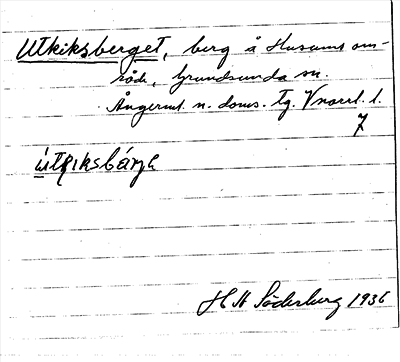 Utkiksberget, berg å Husums om-
råde, Grundsunda sn.
Ångerml. n. doms. tg. Vnorrl. l.
7
ùtkiksbárjə
H H Söderberg 1936